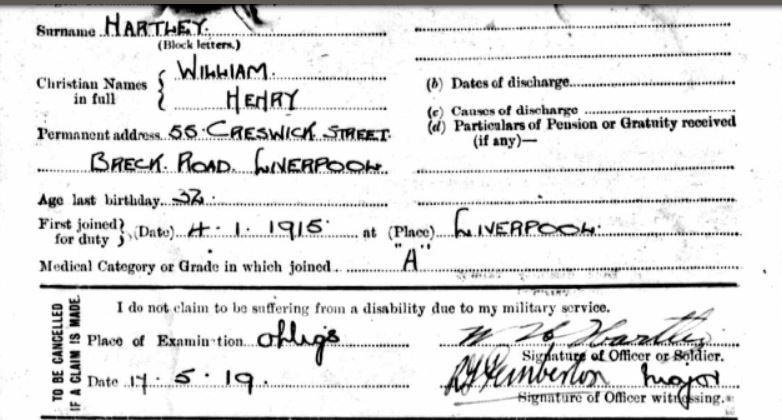 Surname HARTLEY.
(Block letters.)
Christian Names in full { WILLIAM.
HENRY
(b) Dates of discharge
(c) Causes of discharge
(d) Particulars of Pension or Gratuity received (if any)—
Permanent address 55 CRESWICK STREET.
BRECK ROAD LIVERPOOL
Age last birthday 32
First joined for duty } (Date) 4. 1. 1915 at (Place) LIVERPOOL.
Medical Category or Grade in which joined "A"
TO BE CANCELLED
IF A CLAIM IS MADE.
I do not claim to be suffering from a disability due to my military service.
Place of Examination Ohligs
W H Hartley
Signature of Officer or Soldier.
Date 17. 5. 19.
Pemberton Major
Signature of Officer witnessing.